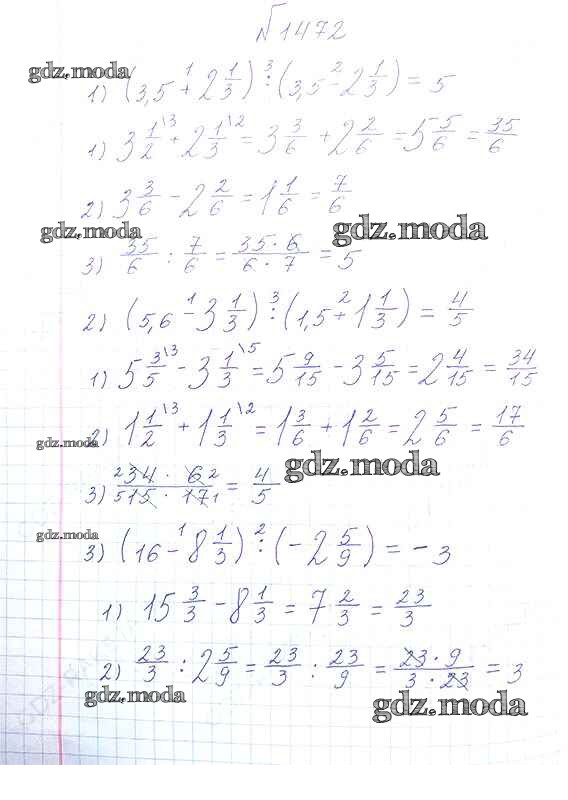 №1472
gdz.moda
1) (3,5 +¹ 2 1/3) :³ (3,5 -² 2 1/3) = 5
1) 3 1/2\3 + 2 1/3\2 = 3 3/6 + 2 2/6 = 5 5/6 = 35/6
2) 3 3/6 - 2 2/6 = 1 1/6 = 7/6
gdz.moda gdz.moda
3) 35/6 : 7/6 = 35·6/6·7 = 5
2) (5,6 -¹ 3 1/3) :³ (1,5 +² 1 1/3) = 4/5
1) 5 3/5\3 - 3 1/3\5 = 5 9/15 - 3 5/15 = 2 4/15 = 34/15
2) 1 1/2\3 + 1 1/3\2 = 1 3/6 + 1 2/6 = 2 5/6 = 17/6
gdz.moda
gdz.moda
3) ²34·6²/⁵15·17¹ = 4/5
gdz.moda
3) (16 -¹ 8 1/3) :² (-2 5/9) = -3
1) 15 3/3 - 8 1/3 = 7 2/3 = 23/3
2) 23/3 : 2 5/9 = 23/3 : 23/9 = 23·9/3·23 = 3
gdz.moda
gdz.moda